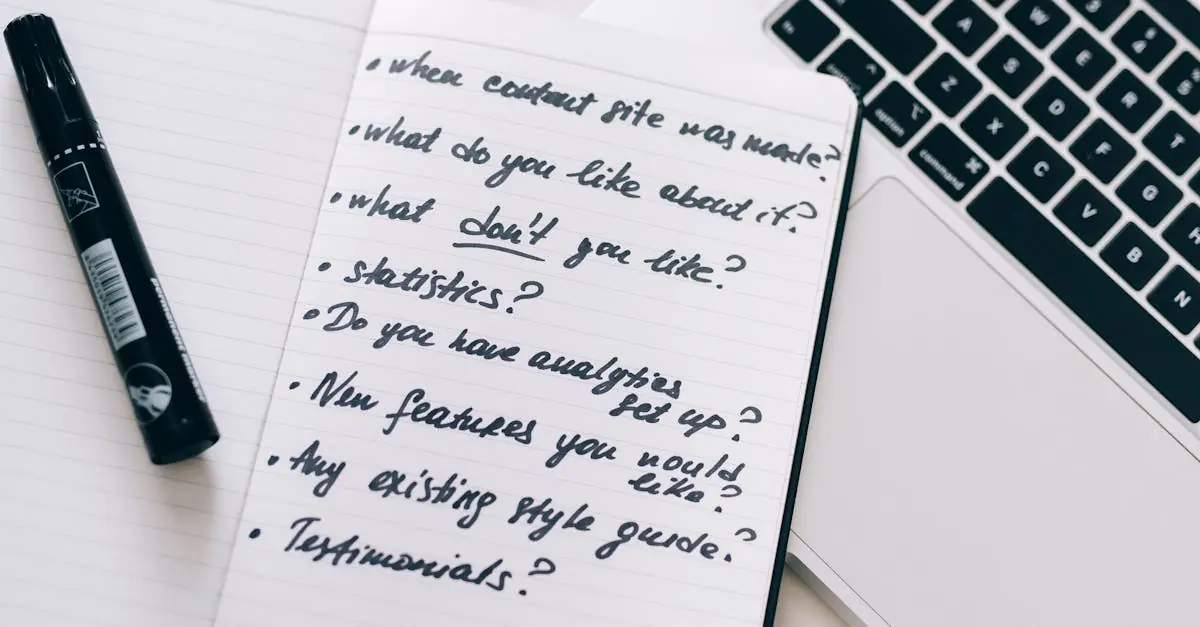 • when content site was made?
• what do you like about it?
• what don't you like?
• statistics?
• Do you have analytics
set up?
• New features you would
like?
• Any existing style guide?
• Testimonials?
A
W
S
E
Z
D
R
X
F
T
C
G
V
H
B
N
option
command ⌘